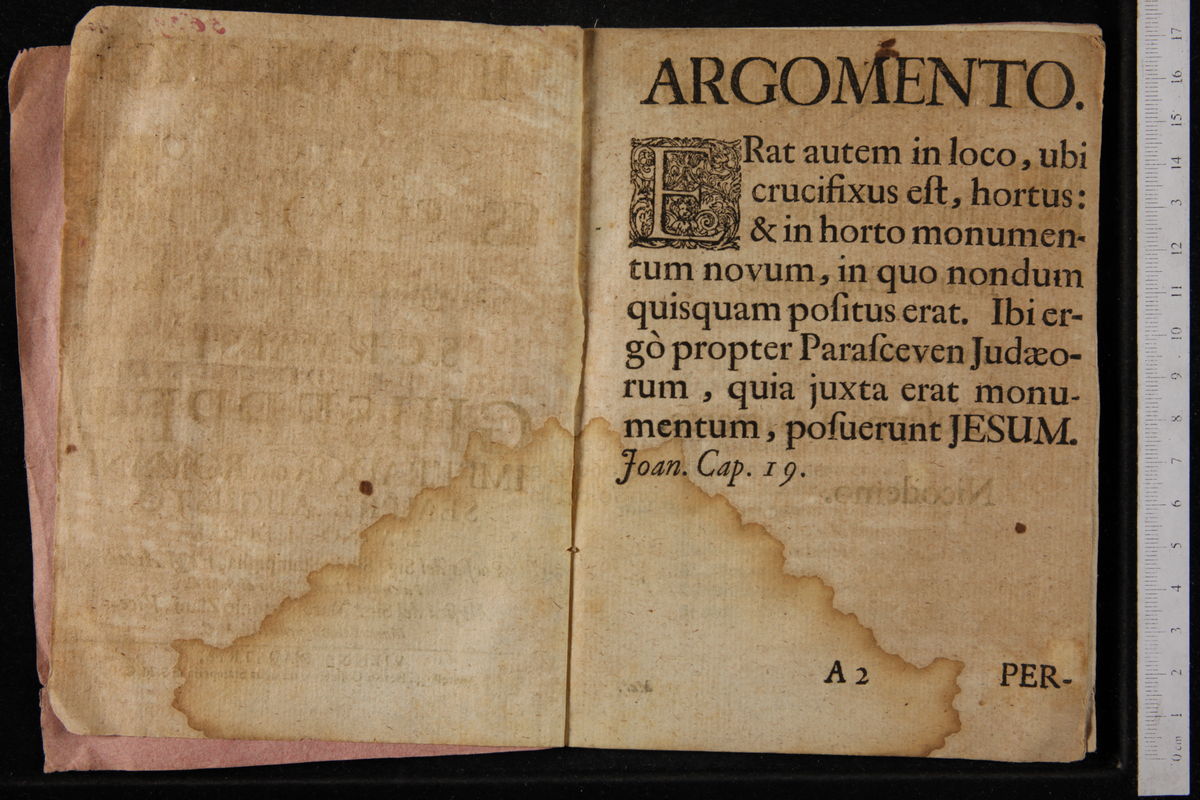 ARGOMENTO.
ERat autem in loco, ubi
crucifixus eſt, hortus:
& in horto monumen-
tum novum, in quo nondum
quisquam poſitus erat. Ibi er-
gò propter Paraſceven Judæo-
rum, quia juxta erat monu-
mentum, poſuerunt JESUM.
Joan. Cap. 19.
A 2
PER-